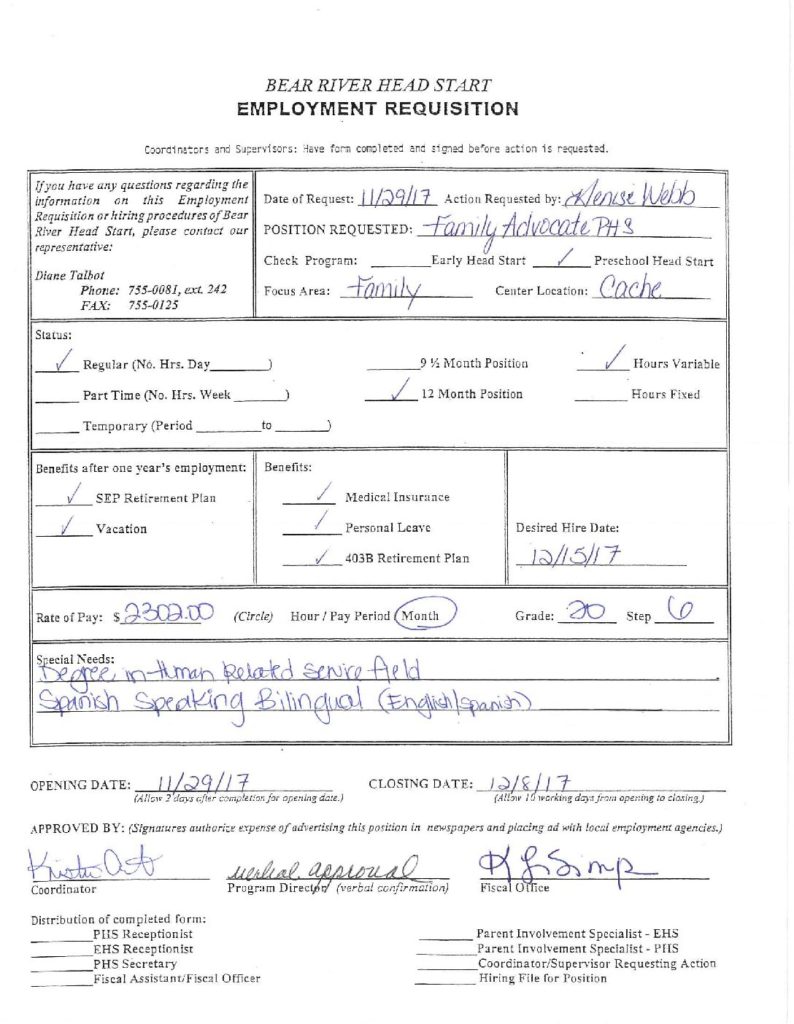 BEAR RIVER HEAD START
EMPLOYMENT REQUISITION
Coordinators and Supervisors: Have form completed and signed before action is requested.
If you have any questions regarding the
information on this Employment
Requisition or hiring procedures of Bear
River Head Start, please contact our
representative:
Diane Talbot
Phone: 755-0081, ext. 242
FAX: 755-0125
Date of Request: 11/29/17 Action Requested by: Webb
POSITION REQUESTED: Family Advocate PHS
Check Program: ______Early Head Start __✓__ Preschool Head Start
Focus Area: Family Center Location: Cache
Status:
✓ Regular (No. Hrs. Day________)
______ Part Time (No. Hrs. Week _______)
______ Temporary (Period ________to ________)
______9 ½ Month Position
✓ 12 Month Position
✓ Hours Variable
______ Hours Fixed
Benefits after one year's employment:
✓ SEP Retirement Plan
✓ Vacation
Benefits:
✓ Medical Insurance
✓ Personal Leave
✓ 403B Retirement Plan
Desired Hire Date:
12/15/17
Rate of Pay: $ 2302.00 (Circle) Hour / Pay Period / Month Grade: 20 Step 6
Special Needs:
Degree in Human Related Service field
Spanish Speaking Bilingual (English/Spanish)
OPENING DATE: 11/29/17 CLOSING DATE: 12/8/17
(Allow 2 days after completion for opening date.) (Allow 10 working days from opening to closing.)
APPROVED BY: (Signatures authorize expense of advertising this position in newspapers and placing ad with local employment agencies.)
verbal approval
Coordinator Program Director (verbal confirmation) Fiscal Office
Distribution of completed form:
______PHS Receptionist
______EHS Receptionist
______PHS Secretary
______Fiscal Assistant/Fiscal Officer
______Parent Involvement Specialist - EHS
______Parent Involvement Specialist - PHS
______Coordinator/Supervisor Requesting Action
______Hiring File for Position